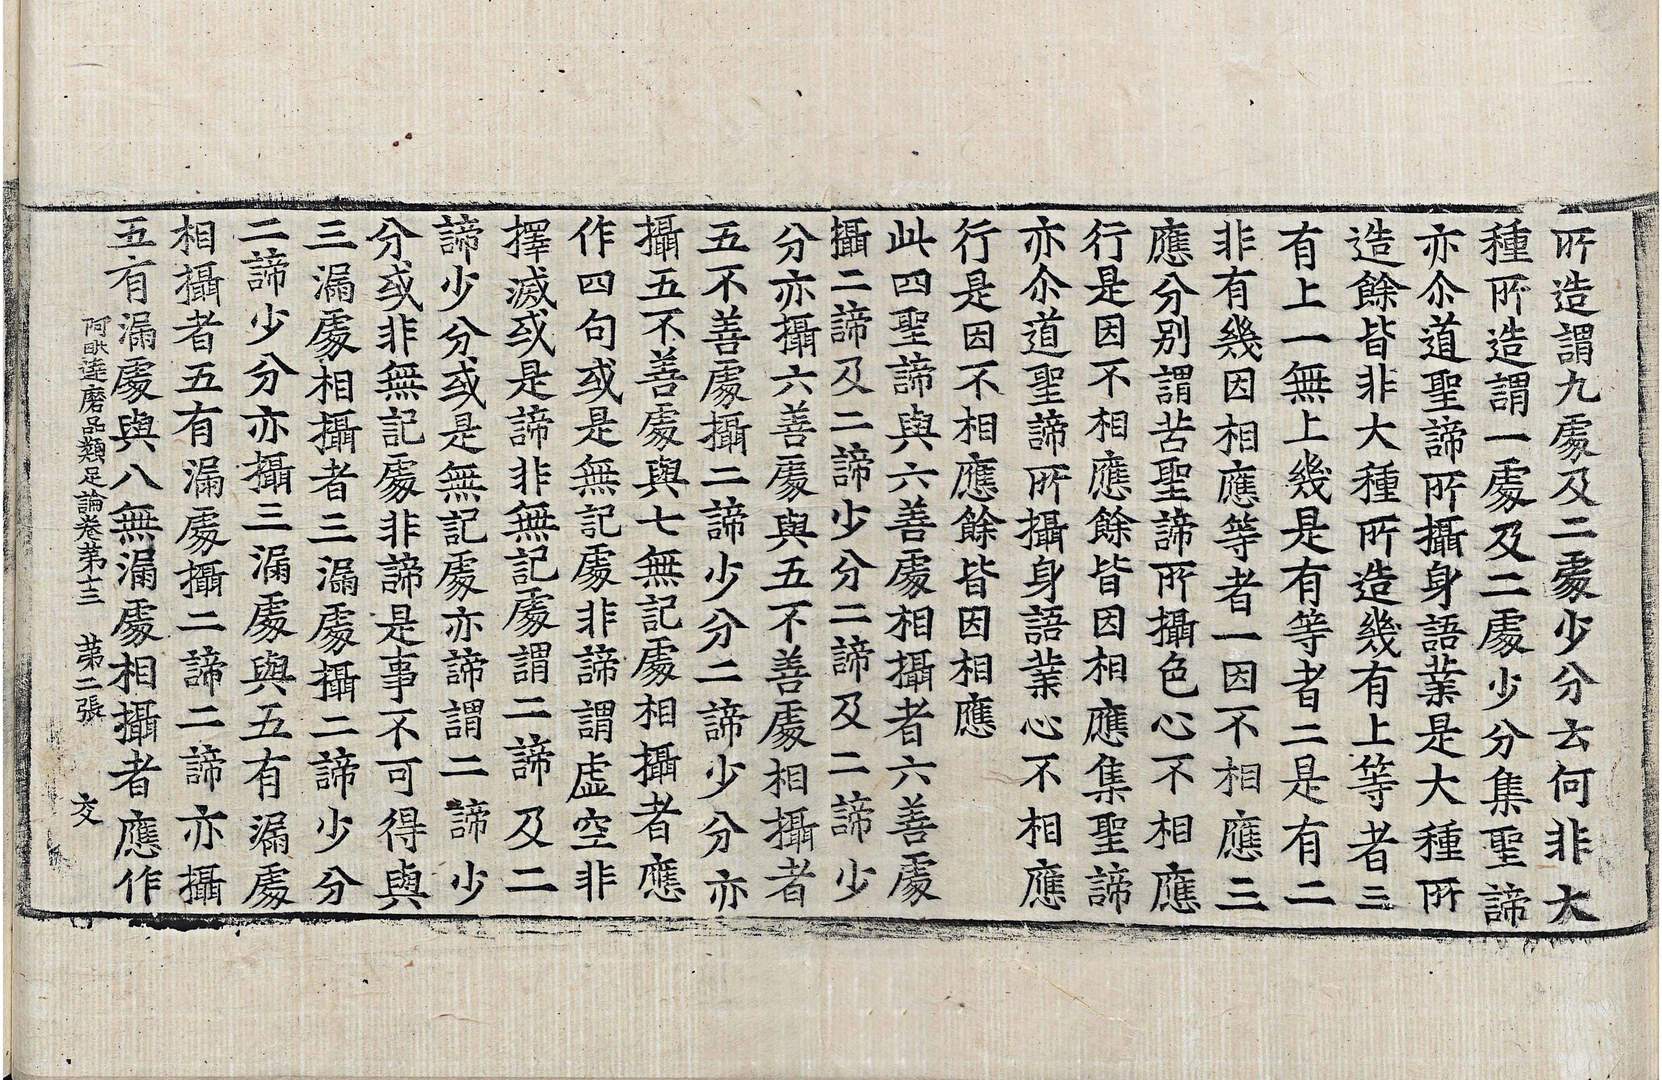 所造謂九處及二處少分云何非大
種所造謂一處及二處少分集聖諦
亦尒道聖諦所攝身語業是大種所
造餘皆非大種所造幾有上等者三
有上一無上幾是有等者二是有二
非有幾因相應等者一因不相應三
應分別謂苦聖諦所攝色心不相應
行是因不相應餘皆因相應集聖諦
亦尒道聖諦所攝身語業心不相應
行是因不相應餘皆因相應
此四聖諦與六善處相攝者六善處
攝二諦及二諦少分二諦及二諦少
分亦攝六善處與五不善處相攝者
五不善處攝二諦少分二諦少分亦
攝五不善處與七無記處相攝者應
作四句或是無記處非諦謂虛空非
擇滅或是諦非無記處謂二諦及二
諦少分或是無記處亦諦謂二諦少
分或非無記處非諦是事不可得與
三漏處相攝者三漏處攝二諦少分
二諦少分亦攝三漏處與五有漏處
相攝者五有漏處攝二諦二諦亦攝
五有漏處與八無漏處相攝者應作
阿毗達磨品類足論卷第十三 第二張 交